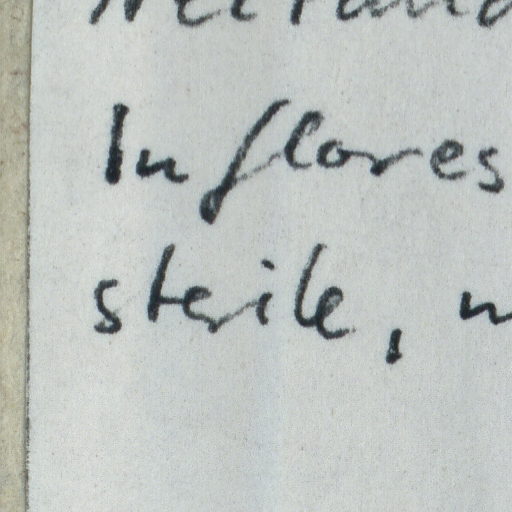 Inflores
sterile,